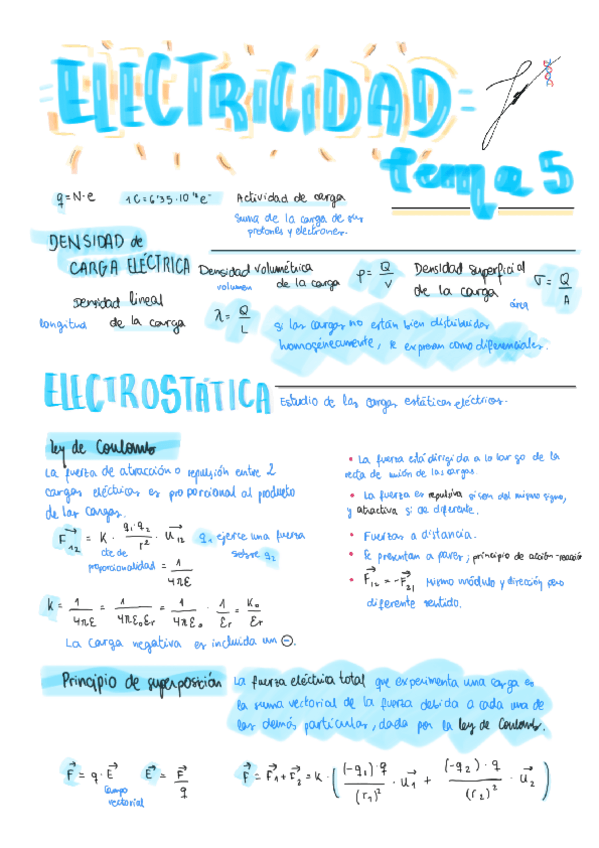 ELECTRICIDAD
tema 5
q = N·e    1C = 6'35·10¹⁸e⁻    Actividad de carga
Suma de la carga de sus
protones y electrones.
DENSIDAD de
CARGA ELÉCTRICA
Densidad volumétrica
volumen de la carga
ρ = Q/V
Densidad superficial
de la carga
área
σ = Q/A
Densidad lineal
longitud de la carga
λ = Q/L
Si las cargas no están bien distribuidas
homogéneamente, se expresan como diferenciales.
ELECTROSTÁTICA
Estudio de las cargas estáticas eléctricas.
Ley de Coulomb
La fuerza de atracción o repulsión entre 2
cargas eléctricas es proporcional al producto
de las cargas.
F⃗₁₂ = K · q₁·q₂/r² · u⃗₁₂    q₁ ejerce una fuerza
sobre q₂
cte de
proporcionalidad = 1/4πε
K = 1/4πε = 1/4πε₀εr = 1/4πε₀ · 1/εr = K₀/εr
La carga negativa es incluida un ⊖.
• La fuerza está dirigida a lo largo de la
recta de unión de las cargas.
• La fuerza es repulsiva si son del mismo signo,
y atractiva si es diferente.
• Fuerzas a distancia.
• Se presentan a pares; principio de acción-reacción
• F⃗₁₂ = -F⃗₂₁ Mismo módulo y dirección pero
diferente sentido.
Principio de superposición
La fuerza eléctrica total que experimenta una carga es
la suma vectorial de la fuerza debida a cada una de
las demás particular, dada por la ley de Coulomb.
F⃗ = q·E⃗    E⃗ = F⃗/q
Campo
vectorial
F⃗ = F⃗₁ + F⃗₂ = K · ( (-q₁)·q/(r₁)² · u⃗₁ + (-q₂)·q/(r₂)² · u⃗₂ )